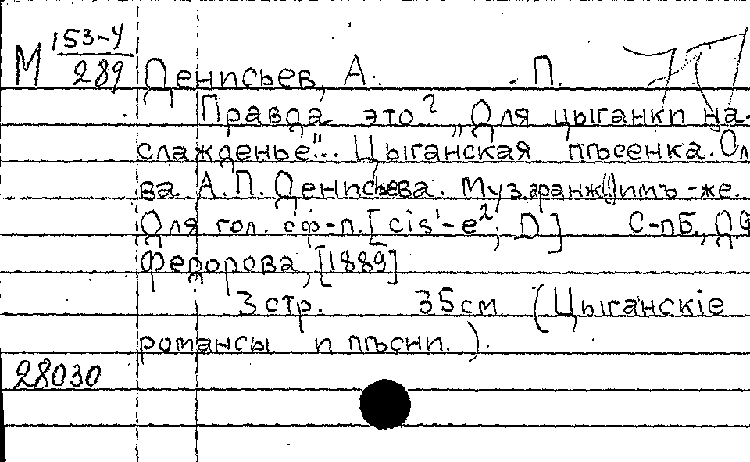 М 153-4/289 Денисьев, А. П.
Правда это? „Для цыганки на-
слажденье“.. Цыганская пѣсенка. Сл
ва А.П. Денисьева. Муз. аранж. имъ-же.
Для гол. с ф-п. [cis¹-e²; D] С-пБ.,
Федорова, [1889]
3 стр. 35 см (Цыганскіе
романсы и пѣсни.).
28030